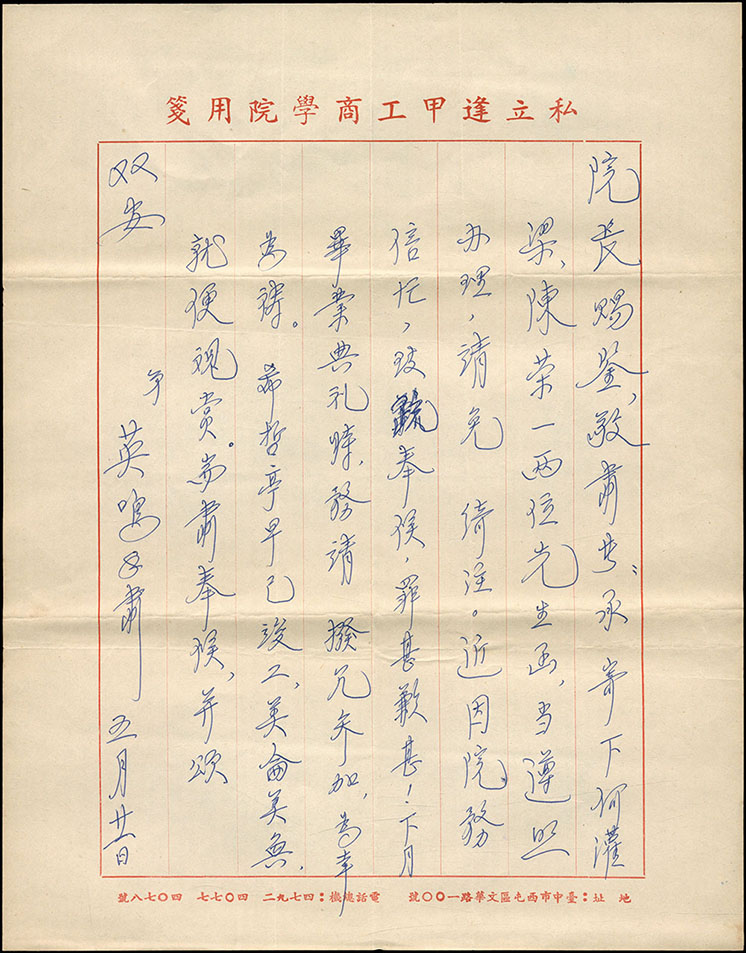 私立逢甲工商學院用箋
院長賜鑒，敬肅者：承 寄下何灌
梁、陳榮一兩位先生函，当遵照
办理，請免 綺注。近因院務
倍忙，致疏奉候，罪甚歉甚！下月
畢業典礼時，務請 撥冗参加，為幸
為禱。希哲亭早已竣工，美侖美奐，
就便観賞。耑肅奉候，并頌
双安
英鳴 肅 五月廿一日
地 址：臺中市西屯區文華路一〇〇號 電話總機：四七九二 四〇七七 四〇七八號